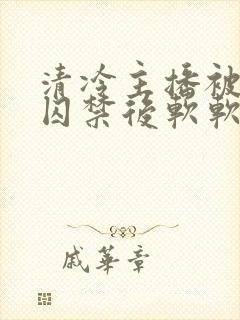 清冷主播被
囚禁後軟軟
戚華章